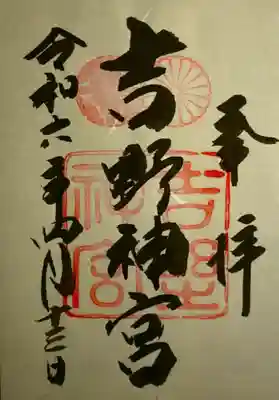 奉拝
吉野神宮
吉野神宮
令和六年四月十三日